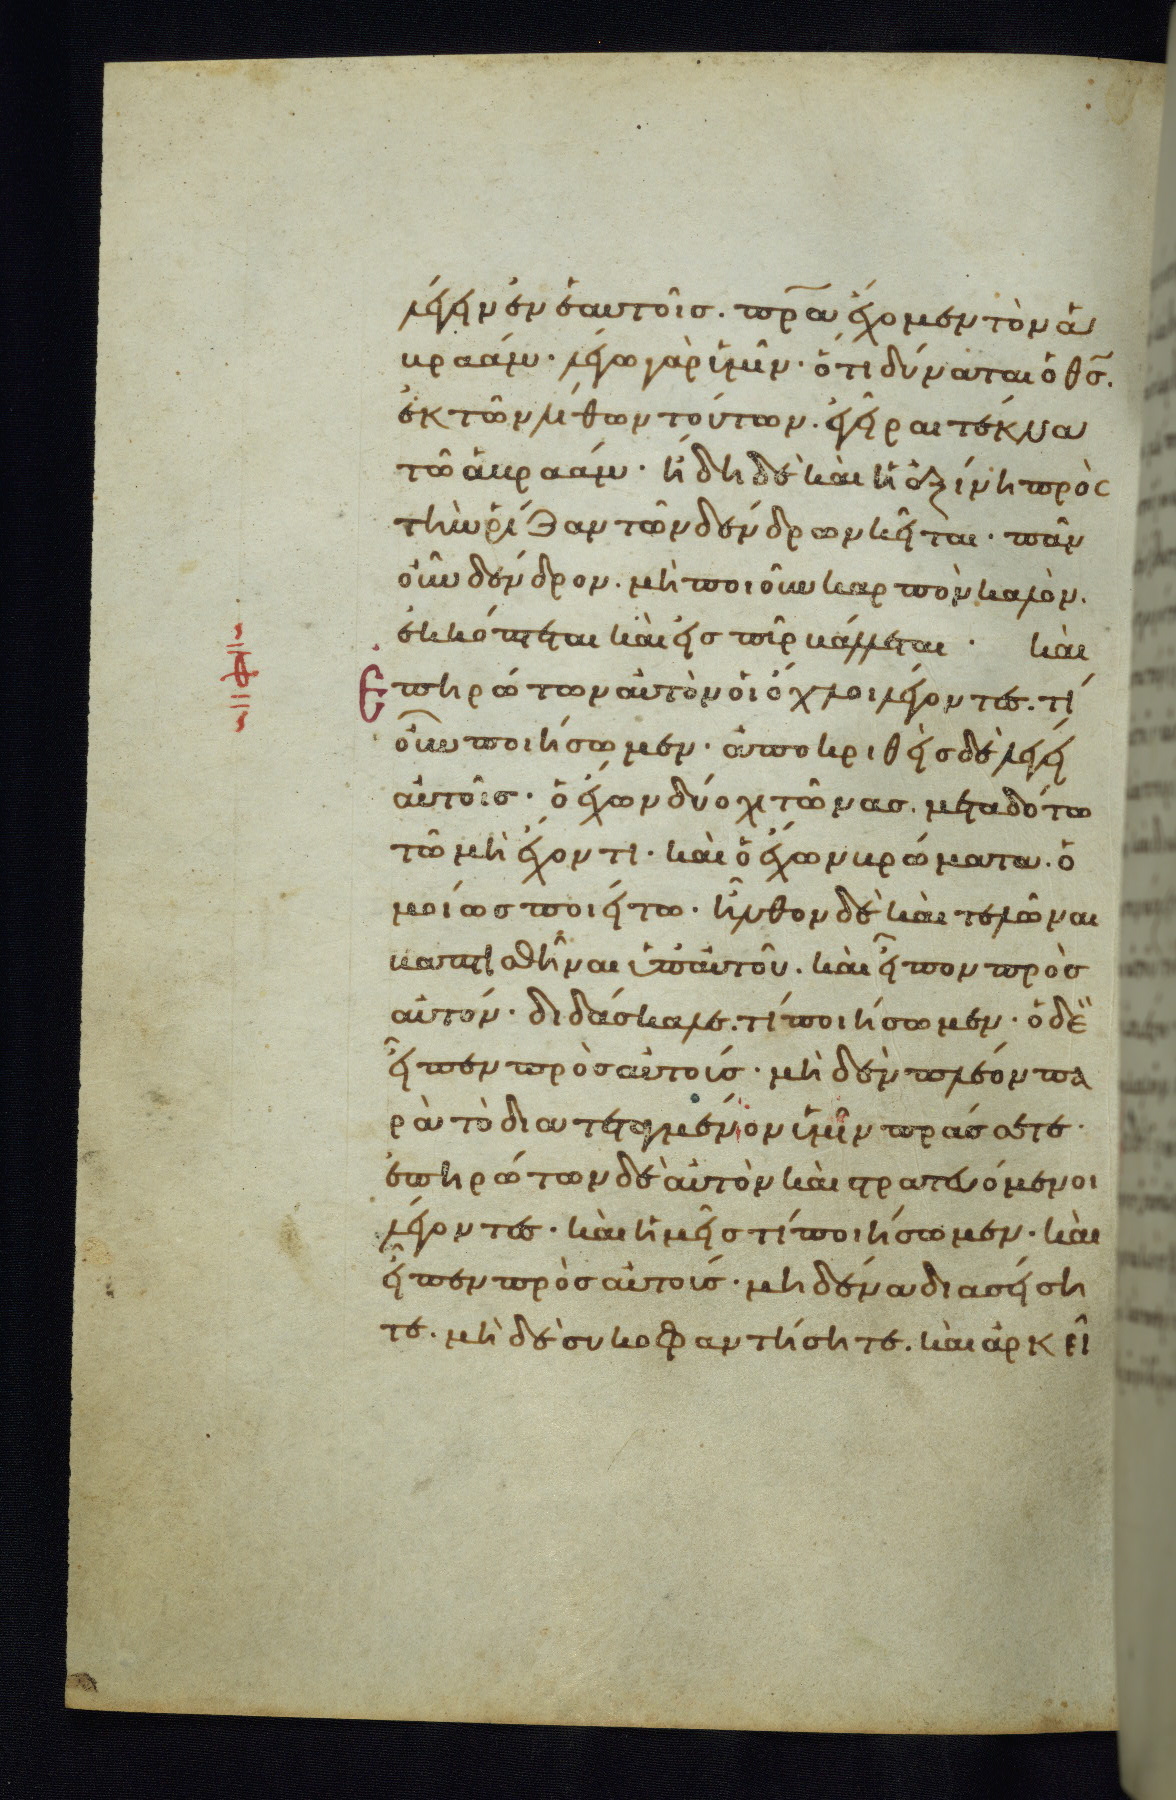 λέγειν ἐν ἑαυτοῖς. π̅ρ̅α ἔχομεν τὸν ἀ
βραάμ· λέγω γὰρ ὑμῖν· ὅτι δύναται ὁ θ̅ς̅.
ἐκ τῶν λίθων τούτων. ἐγεῖραι τέκνα
τῶ ἀβραάμ· ἤδη δὲ καὶ ἡ ἀξίνη πρὸς
τὴν ῥίζαν τῶν δένδρων κεῖται· πᾶν
οὖν δένδρον. μὴ ποιοῦν καρπὸν καλὸν.
ἐκκόπτεται καὶ εἰς πῦρ βάλλεται· καὶ
Ἐπηρώτων αὐτὸν οἱ ὄχλοι λέγοντες. τί
οὖν ποιήσωμεν· ἀποκριθεὶς δὲ λέγει
αὐτοῖς· ὁ ἔχων δύο χιτῶνας. μεταδότω
τῶ μὴ ἔχοντι· καὶ ὁ ἔχων βρώματα. ὁ
μοίως ποιείτω· ἦλθον δὲ καὶ τελῶναι
βαπτισθῆναι ὑπ' αὐτοῦ. καὶ εἶπον πρὸς
αὐτόν· διδάσκαλε. τί ποιήσωμεν· ὁ δὲ
εἶπεν πρὸς αὐτούς· μηδὲν πλέον πα
ρὰ τὸ διατεταγμένον ὑμῖν πράσσετε·
ἐπηρώτων δὲ αὐτὸν καὶ στρατευόμενοι
λέγοντες· καὶ ἡμεῖς τί ποιήσωμεν· καὶ
εἶπεν πρὸς αὐτούς· μηδένα διασείση
τε. μὴ δὲ συκοφαντήσητε. καὶ ἀρκεῖ